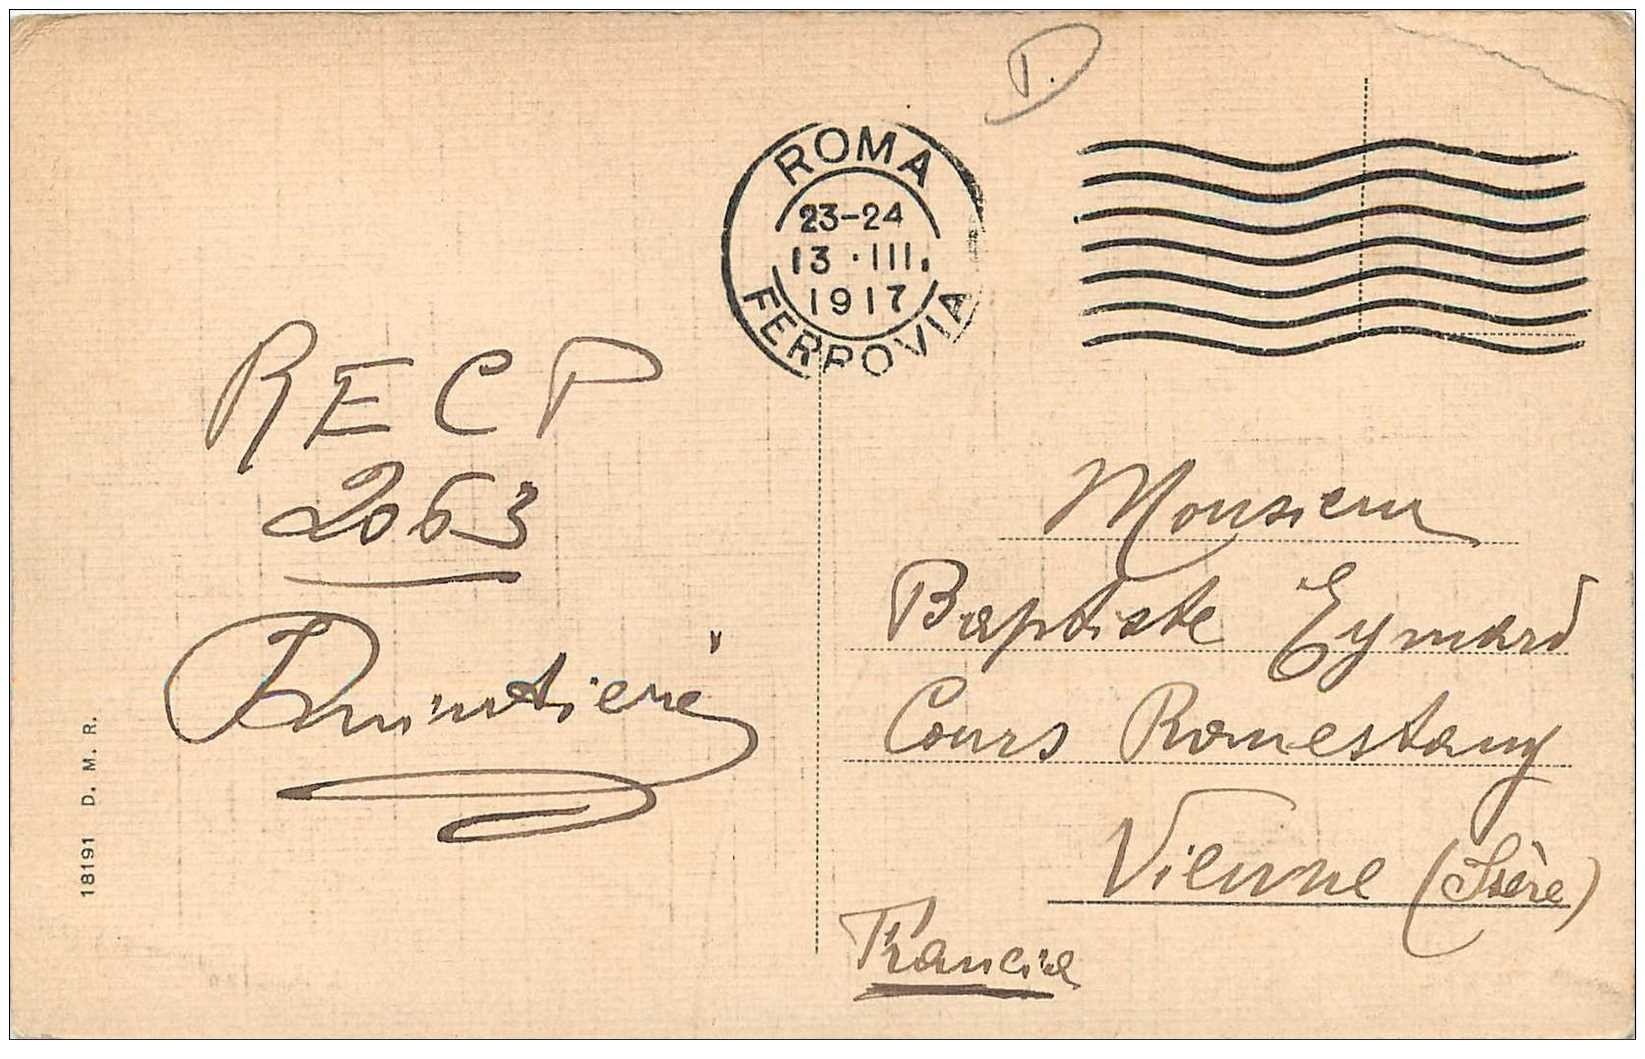 D.
ROMA
23-24
13 · III.
1917
FERROVIA
RECP
2063
Monsieur
Baptiste Eymard
Cours Romestang
Vienne (Isère)
Francia
18191 D. M. R.